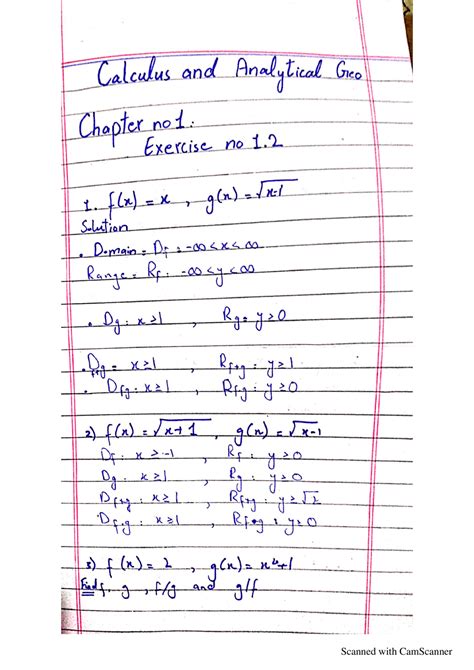 Calculus and Analytical Geo
Chapter no 1:
Exercise no 1.2
1. f(x) = x , g(x) = √x-1
Solution
. Domain = Df : -∞ < x < ∞
Range = Rf : -∞ < y < ∞
. Dg : x ≥ 1 , Rg = y ≥ 0
. Df+g = x ≥ 1 , Rf+g : y ≥ 1
. Df.g : x ≥ 1 , Rf.g : y ≥ 0
2) f(x) = √x+1 , g(x) = √x-1
Df : x ≥ -1 , Rf : y ≥ 0
Dg : x ≥ 1 , Rg : y ≥ 0
Df+g : x ≥ 1 , Rf+g : y ≥ √2
Df.g : x ≥ 1 , Rf.g : y ≥ 0
3) f(x) = 2 , g(x) = x²+1
Find f. g , f/g and g/f
Scanned with CamScanner